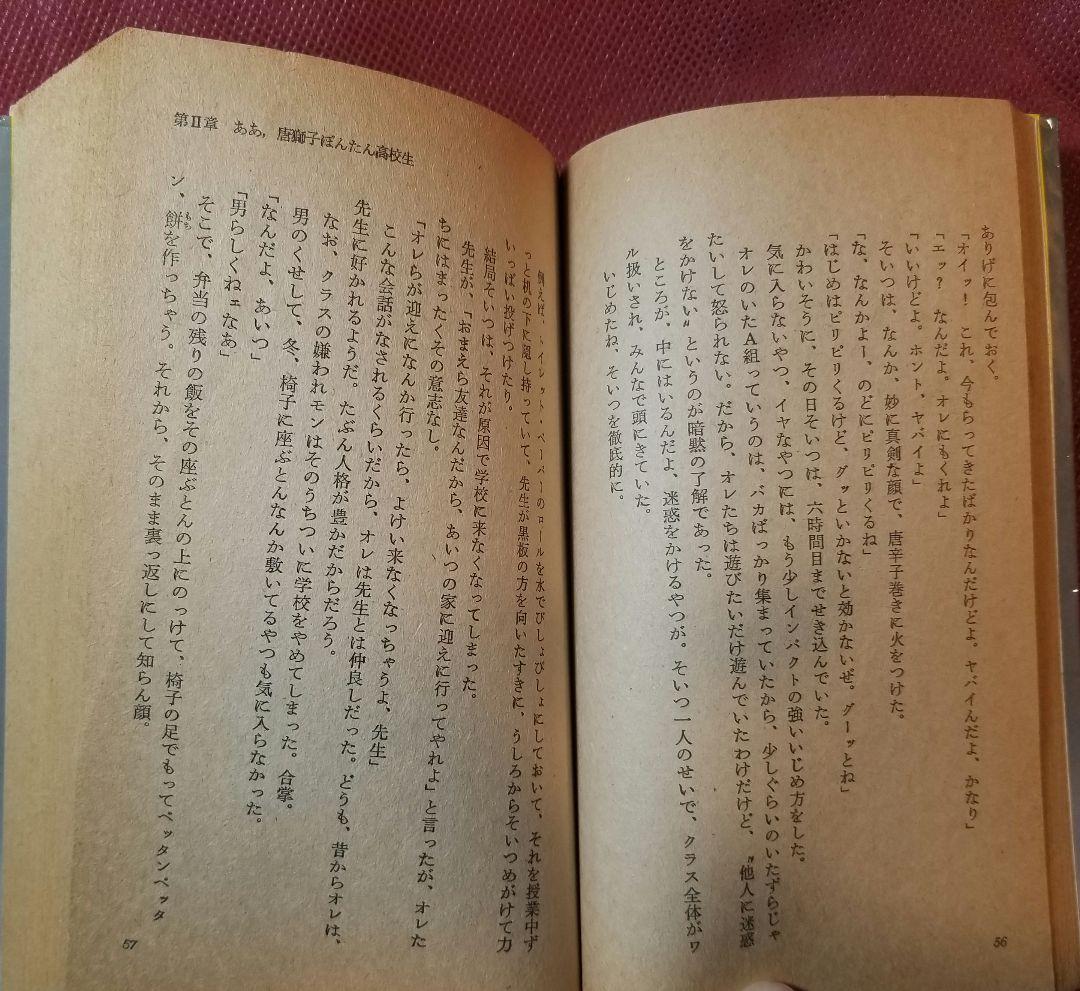 ありげに包んでおく。
「オイッ！　これ、今もらってきたばかりなんだけどよ。ヤバイんだよ、かなり」
「エッ？　なんだよ。オレにもくれよ」
「いいけどよ。ホント、ヤバイよ」
そいつは、なんか、妙に真剣な顔で、唐辛子巻きに火をつけた。
「な、なんかよー、のどにピリピリくるね」
「はじめはピリピリくるけど、グッといかないと効かないぜ。グーッとね」
かわいそうに、その日そいつは、六時間目までせき込んでいた。
気に入らないやつ、イヤなやつには、もう少しインパクトの強いいじめ方をした。
オレのいたA組っていうのは、バカばっかり集まっていたから、少しぐらいのいたずらじゃ
たいして怒られない。だから、オレたちは遊びたいだけ遊んでいたわけだけど、〝他人に迷惑
をかけない〟というのが暗黙の了解であった。
ところが、中にはいるんだよ、迷惑をかけるやつが。そいつ一人のせいで、クラス全体がワ
ル扱いされ、みんなで頭にきていた。
いじめたね、そいつを徹底的に。
56
第Ⅱ章　ああ，唐獅子ぼんたん高校生
例えば、トイレット・ペーパーのロールを水でびしょびしょにしておいて、それを授業中ず
っと机の下に隠し持っていて、先生が黒板の方を向いたすきに、うしろからそいつめがけて力
いっぱい投げつけたり。
結局そいつは、それが原因で学校に来なくなってしまった。
先生が、「おまえら友達なんだから、あいつの家に迎えに行ってやれよ」と言ったが、オレた
ちにはまったくその意志なし。
「オレらが迎えになんか行ったら、よけい来なくなっちゃうよ、先生」
こんな会話がなされるくらいだから、オレは先生とは仲良しだった。どうも、昔からオレは、
先生に好かれるようだ。たぶん人格が豊かだからだろう。
なお、クラスの嫌われモンはそのうちついに学校をやめてしまった。合掌。
男のくせして、冬、椅子に座ぶとんなんか敷いてるやつも気に入らなかった。
「なんだよ、あいつ」
「男らしくねェなあ」
そこで、弁当の残りの飯をその座ぶとんの上にのっけて、椅子の足でもってペッタンペッタ
ン、餅を作っちゃう。それから、そのまま裏っ返しにして知らん顔。
もち
57